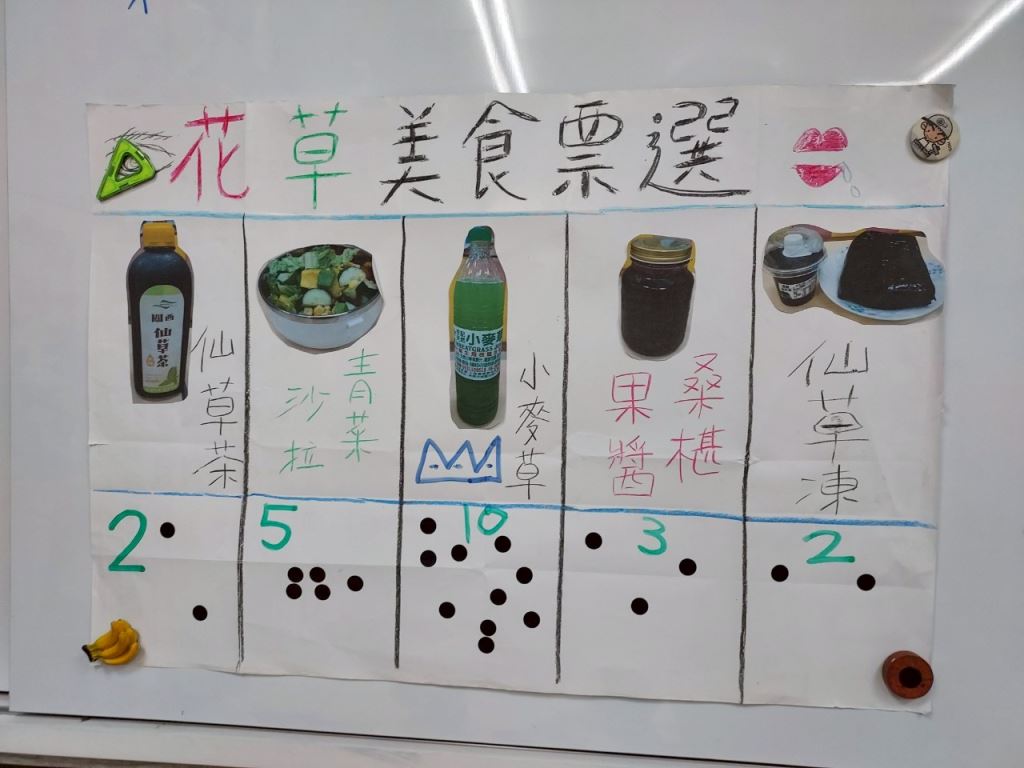 花草美食票選
關西
仙草茶
仙草茶
青菜
沙拉
小麥草
WHEATGRASS
小麥草
桑椹
果醬
仙草凍
2
5
10
3
2